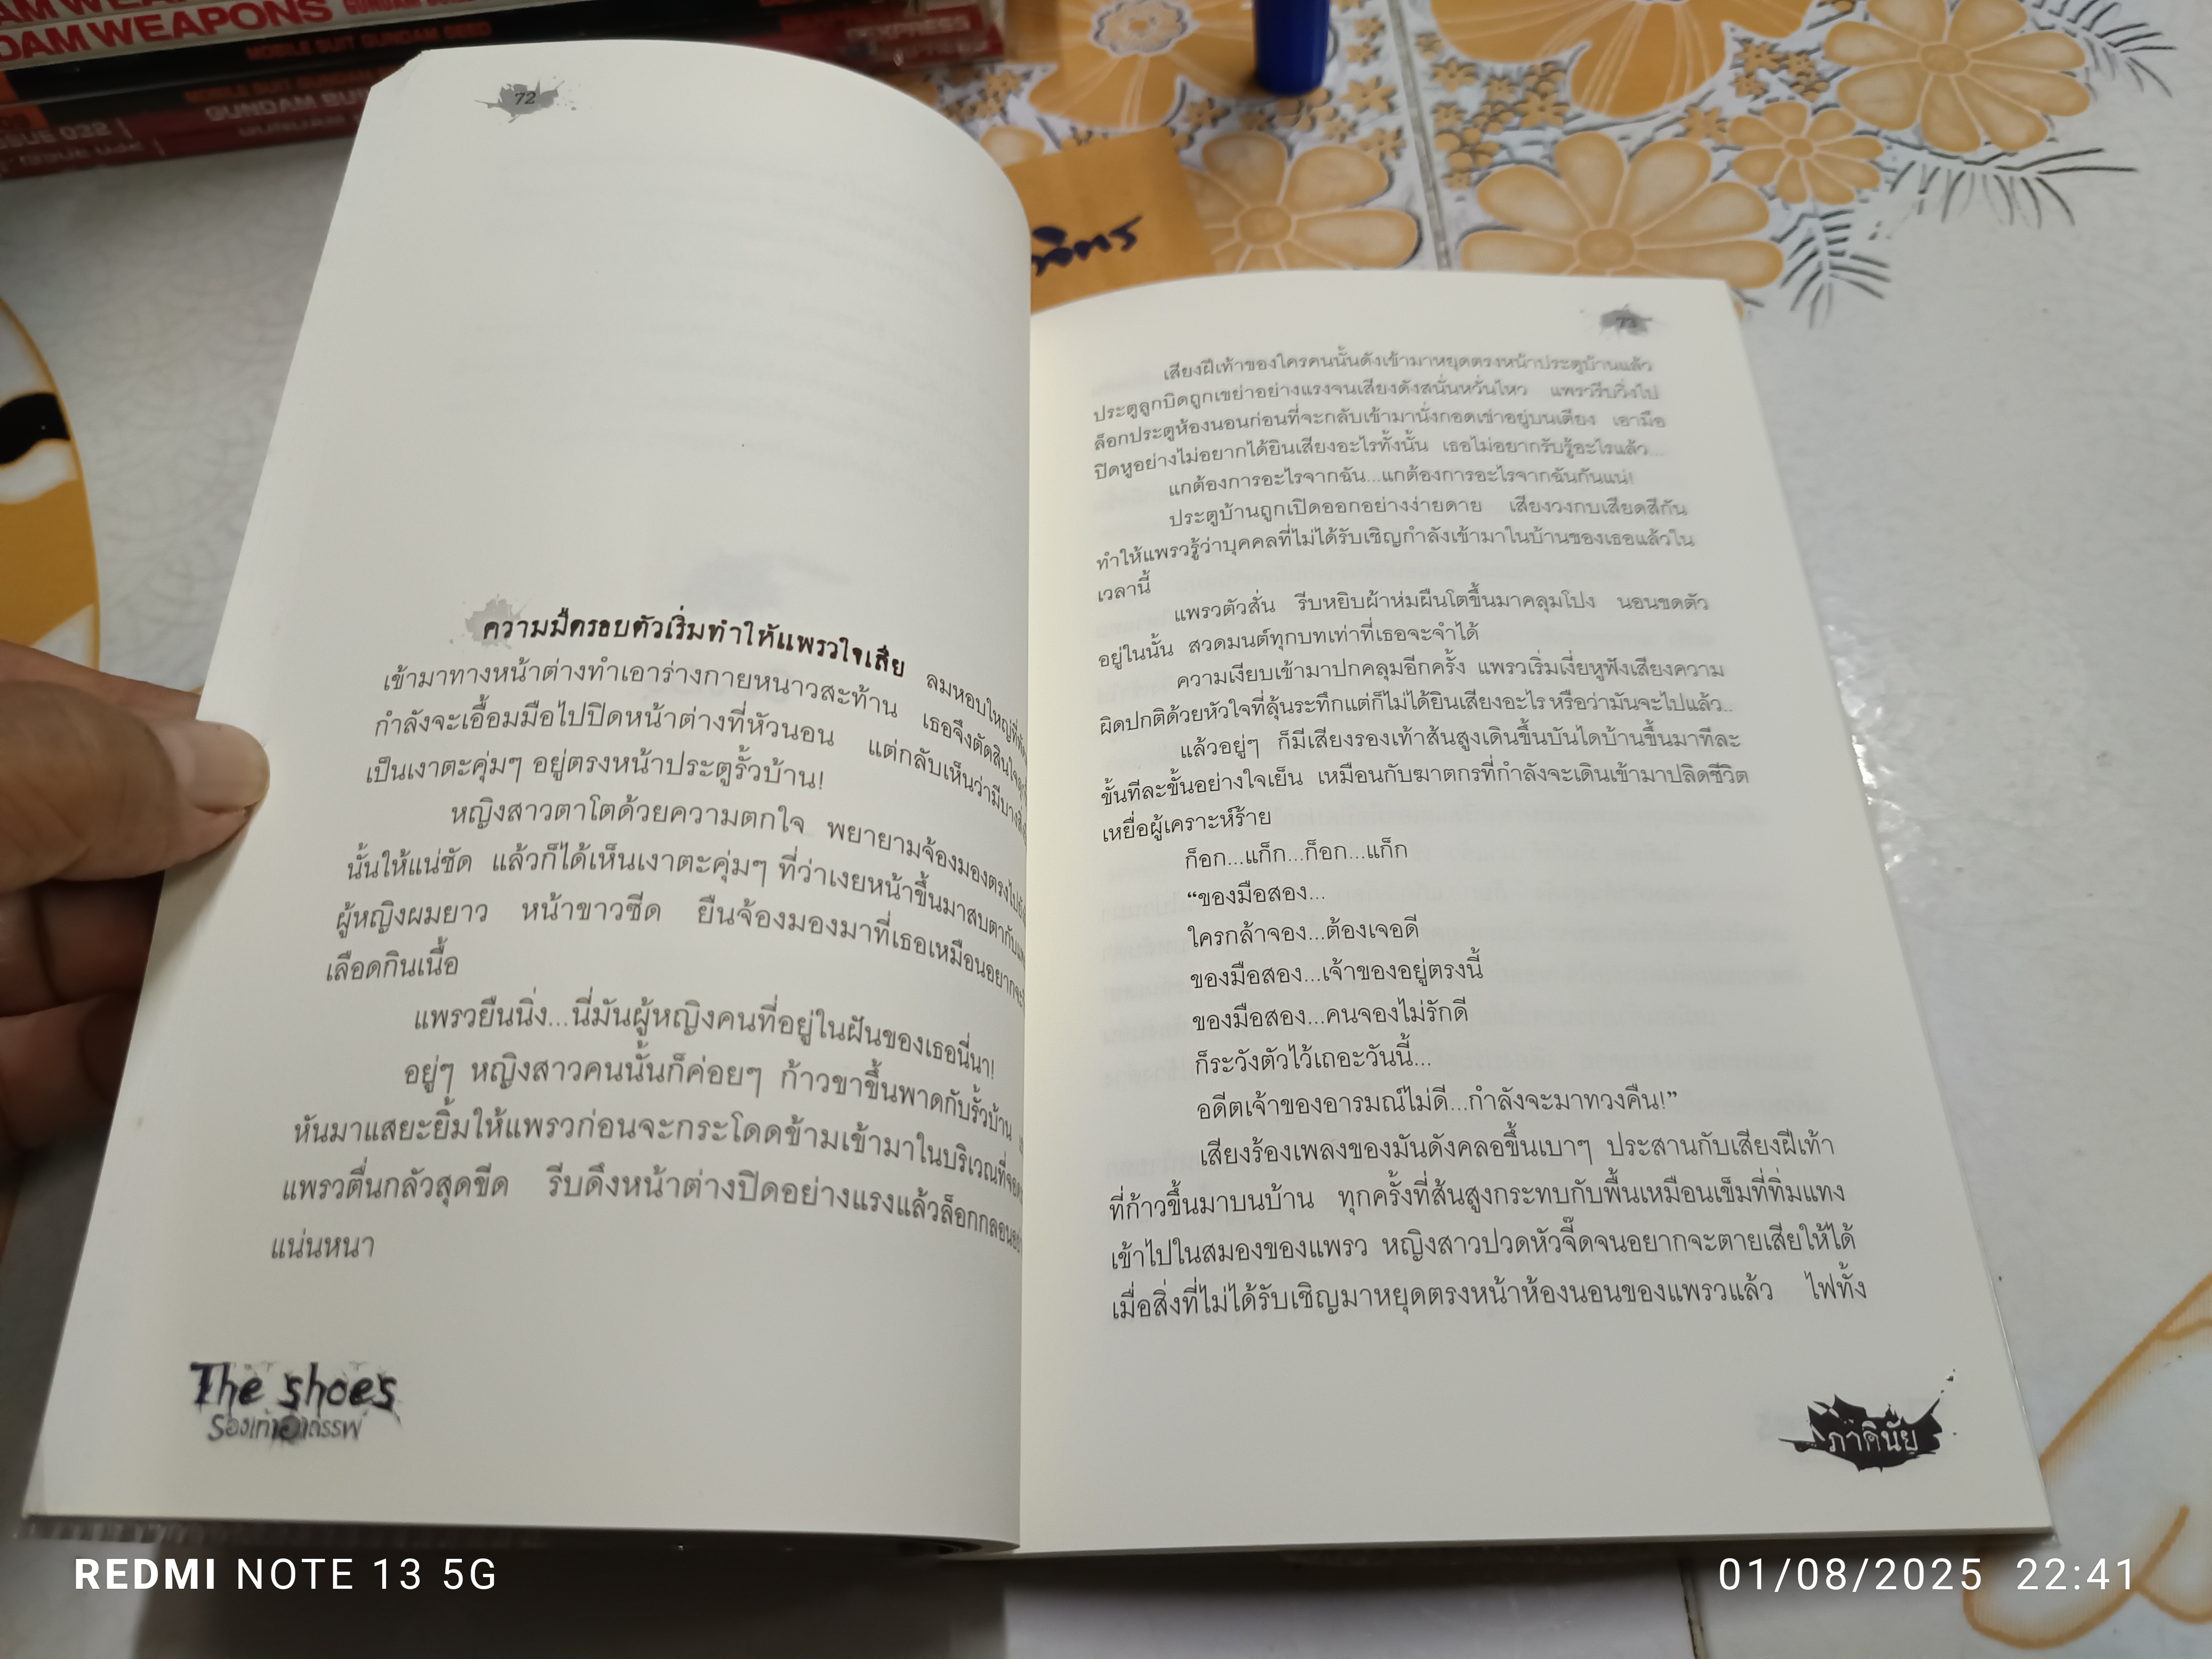 DAM WEAPONS
MOBILE SUIT GUNDAM SEED
GUNDAM
ISSUE 032
EXPRESS
72
ความมืดรอบตัวเริ่มทำให้แพรวใจเสีย ลมหอบใหญ่ที่
เข้ามาทางหน้าต่างทำเอาร่างกายหนาวสะท้าน เธอจึงตัดสินใจ
กำลังจะเอื้อมมือไปปิดหน้าต่างที่หัวนอน แต่กลับเห็นว่ามีบางสิ่ง
เป็นเงาตะคุ่มๆ อยู่ตรงหน้าประตูรั้วบ้าน!
หญิงสาวตาโตด้วยความตกใจ พยายามจ้องมองตรงไป
นั้นให้แน่ชัด แล้วก็ได้เห็นเงาตะคุ่มๆ ที่ว่าเงยหน้าขึ้นมาสบตากับ
ผู้หญิงผมยาว หน้าขาวซีด ยืนจ้องมองมาที่เธอเหมือนอยากจะ
เลือดกินเนื้อ
แพรวยืนนิ่ง...นี่มันผู้หญิงคนที่อยู่ในฝันของเธอนี่นา!
อยู่ๆ หญิงสาวคนนั้นก็ค่อยๆ ก้าวขาขึ้นพาดกับรั้วบ้าน
หันมาแสยะยิ้มให้แพรวก่อนจะกระโดดข้ามเข้ามาในบริเวณที่
แพรวตื่นกลัวสุดขีด รีบดึงหน้าต่างปิดอย่างแรงแล้วล็อกกลอน
แน่นหนา
The shoes
รองเท้าอาถรรพ์
วิจิตร
73
เสียงฝีเท้าของใครคนนั้นดังเข้ามาหยุดตรงหน้าประตูบ้านแล้ว
ประตูลูกบิดถูกเขย่าอย่างแรงจนเสียงดังสนั่นหวั่นไหว แพรวรีบวิ่งไป
ล็อกประตูห้องนอนก่อนที่จะกลับเข้ามานั่งกอดเข่าอยู่บนเตียง เอามือ
ปิดหูอย่างไม่อยากได้ยินเสียงอะไรทั้งนั้น เธอไม่อยากรับรู้อะไรแล้ว...
แกต้องการอะไรจากฉัน...แกต้องการอะไรจากฉันกันแน่!
ประตูบ้านถูกเปิดออกอย่างง่ายดาย เสียงวงกบเสียดสีกัน
ทำให้แพรวรู้ว่าบุคคลที่ไม่ได้รับเชิญกำลังเข้ามาในบ้านของเธอแล้วใน
เวลานี้
แพรวตัวสั่น รีบหยิบผ้าห่มผืนโตขึ้นมาคลุมโปง นอนขดตัว
อยู่ในนั้น สวดมนต์ทุกบทเท่าที่เธอจะจำได้
ความเงียบเข้ามาปกคลุมอีกครั้ง แพรวเริ่มเงี่ยหูฟังเสียงความ
ผิดปกติด้วยหัวใจที่ลุ้นระทึกแต่ก็ไม่ได้ยินเสียงอะไร หรือว่ามันจะไปแล้ว..
แล้วอยู่ๆ ก็มีเสียงรองเท้าส้นสูงเดินขึ้นบันไดบ้านขึ้นมาทีละ
ขั้นทีละขั้นอย่างใจเย็น เหมือนกับฆาตกรที่กำลังจะเดินเข้ามาปลิดชีวิต
เหยื่อผู้เคราะห์ร้าย
ก็อก...แก็ก...ก็อก...แก็ก
“ของมือสอง...
ใครกล้าจอง...ต้องเจอดี
ของมือสอง...เจ้าของอยู่ตรงนี้
ของมือสอง...คนจองไม่รักดี
ก็ระวังตัวไว้เถอะวันนี้...
อดีตเจ้าของอารมณ์ไม่ดี...กำลังจะมาทวงคืน!”
เสียงร้องเพลงของมันดังคลอขึ้นเบาๆ ประสานกับเสียงฝีเท้า
ที่ก้าวขึ้นมาบนบ้าน ทุกครั้งที่ส้นสูงกระทบกับพื้นเหมือนเข็มที่ทิ่มแทง
เข้าไปในสมองของแพรว หญิงสาวปวดหัวจี๊ดจนอยากจะตายเสียให้ได้
เมื่อสิ่งที่ไม่ได้รับเชิญมาหยุดตรงหน้าห้องนอนของแพรวแล้ว ไฟทั้ง
ภาคินัย
REDMI NOTE 13 5G
01/08/2025 22:41